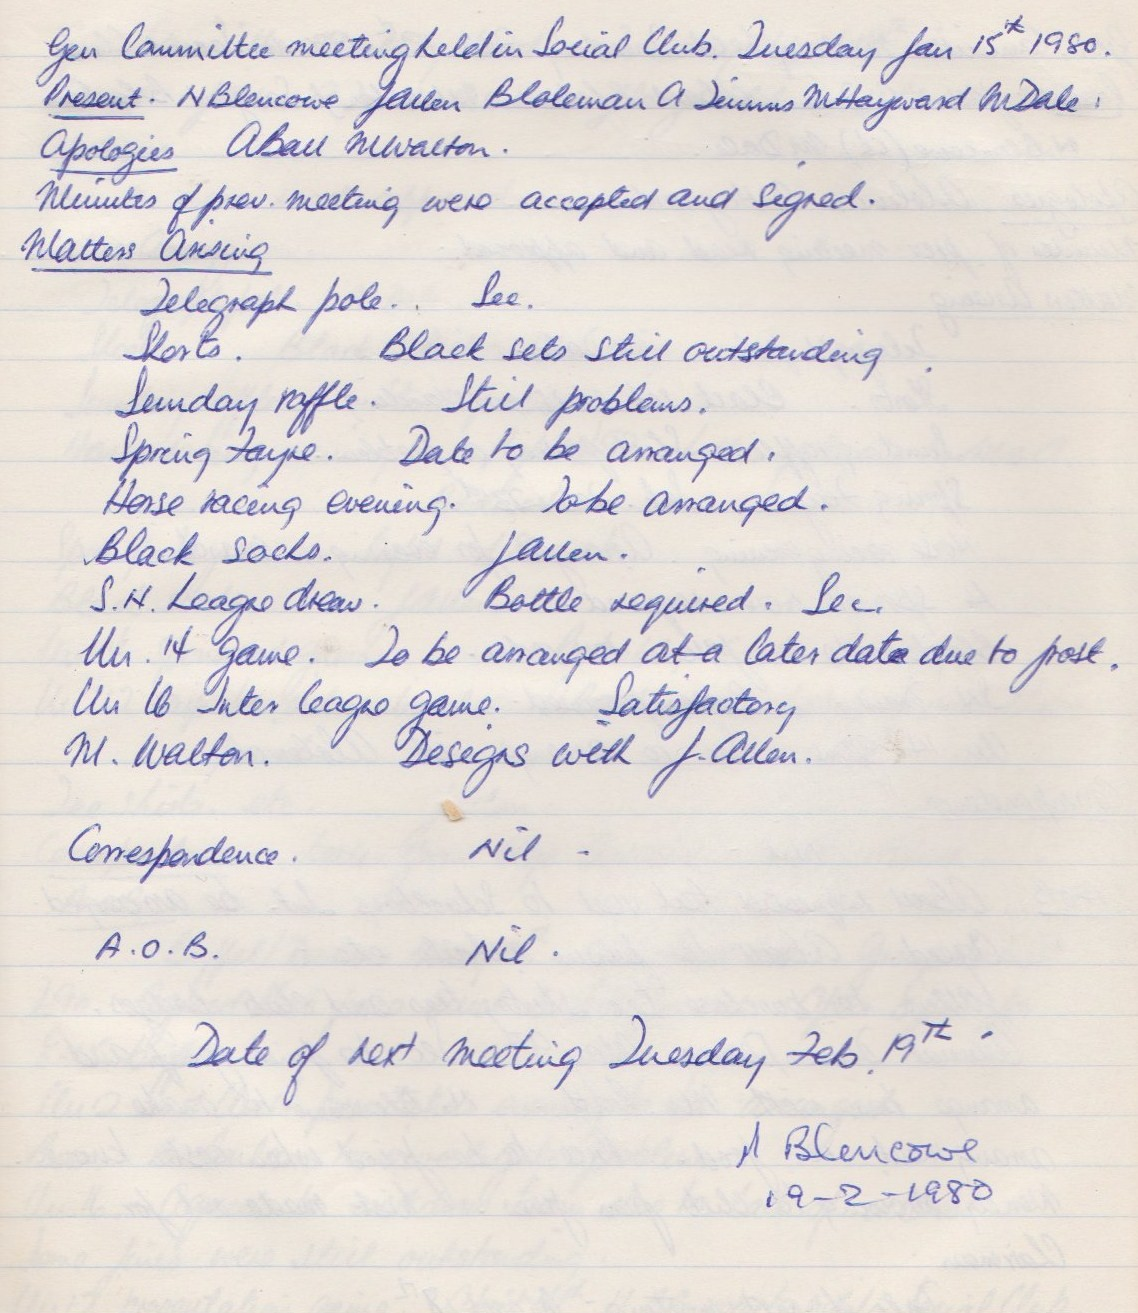 Gen Committee meeting held in Social Club. Tuesday Jan 15th 1980.
Present. N Blencowe J Allen B Coleman A Timms M Hayward M Dale.
Apologies A Ball M Walton.
Minutes of prev. meeting were accepted and signed.
Matters Arising
Telegraph pole. . Sec.
Shorts. Black sets still outstanding.
Sunday raffle. Still problems.
Spring Fayre. Date to be arranged.
Horse racing evening. To be arranged.
Black socks. J Allen.
S.N. League draw. Bottle required. Sec.
Un. 14 game. To be arranged at a later date due to frost.
Un 16 Inter league game. Satisfactory
M. Walton. Designs with J. Allen.
Correspondence. Nil -
A.O.B. Nil.
Date of next meeting Tuesday Feb. 19th.
N Blencowe
19-2-1980